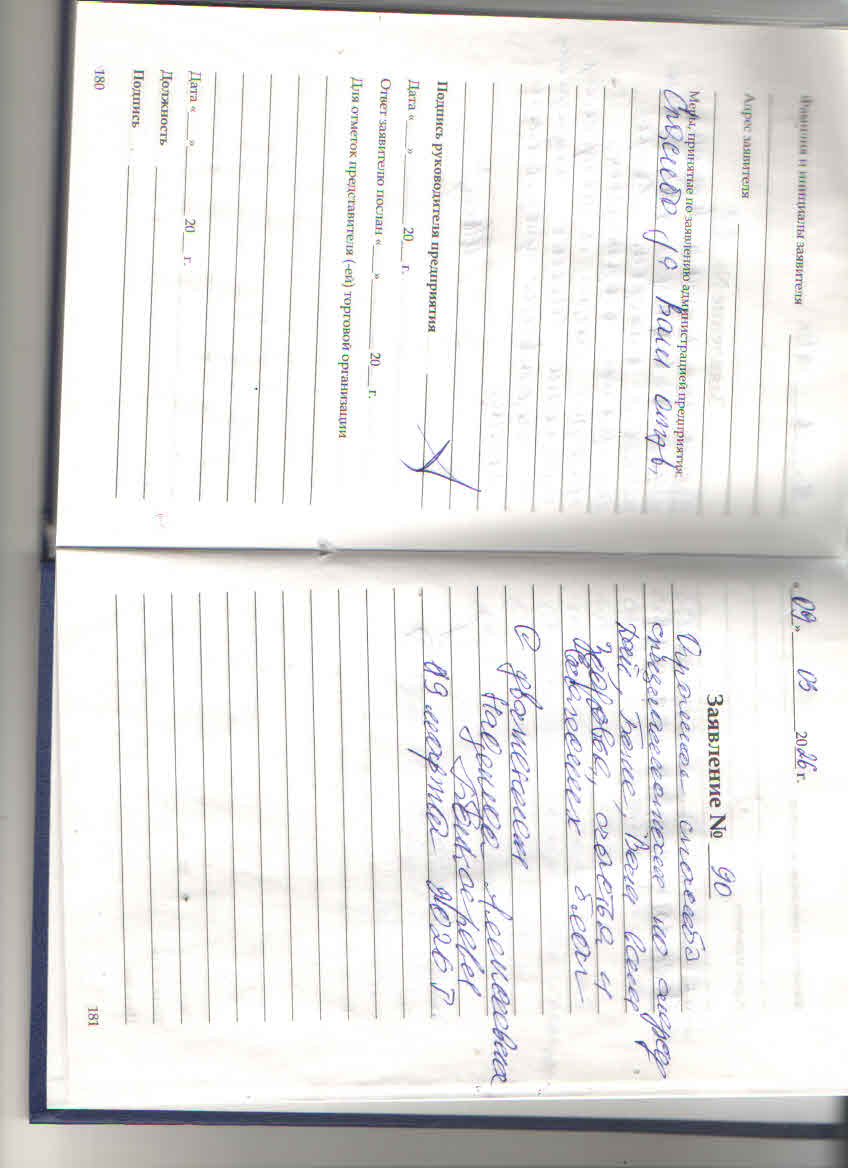 Фамилия и инициалы заявителя
Адрес заявителя
Меры, принятые по заявлению администрацией предприятия:
Спасибо за Ваш отзыв,
Подпись руководителя предприятия
Дата « » 20 г.
Ответ заявителю послан « » 20 г.
Для отметок представителя (-ей) торговой организации
Дата « » 20 г.
Должность
Подпись
180
« 09 » 03 2026 г.
Заявление № 90
Огромное спасибо
специалистам
Вам всем
Здоровья, счастья и
благ
С уважением
09 марта 2026 г
181